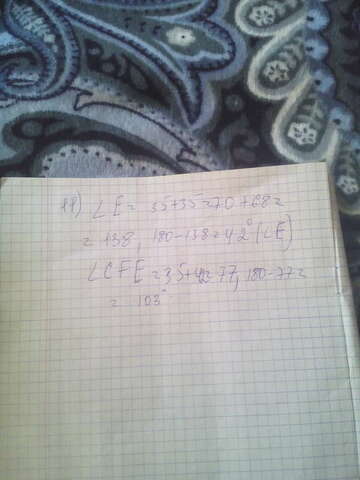 11) ∠E = 35+35=70+68=
= 138, 180-138=42° (∠E)
∠CFE = 35+42=77, 180-77=
= 103°